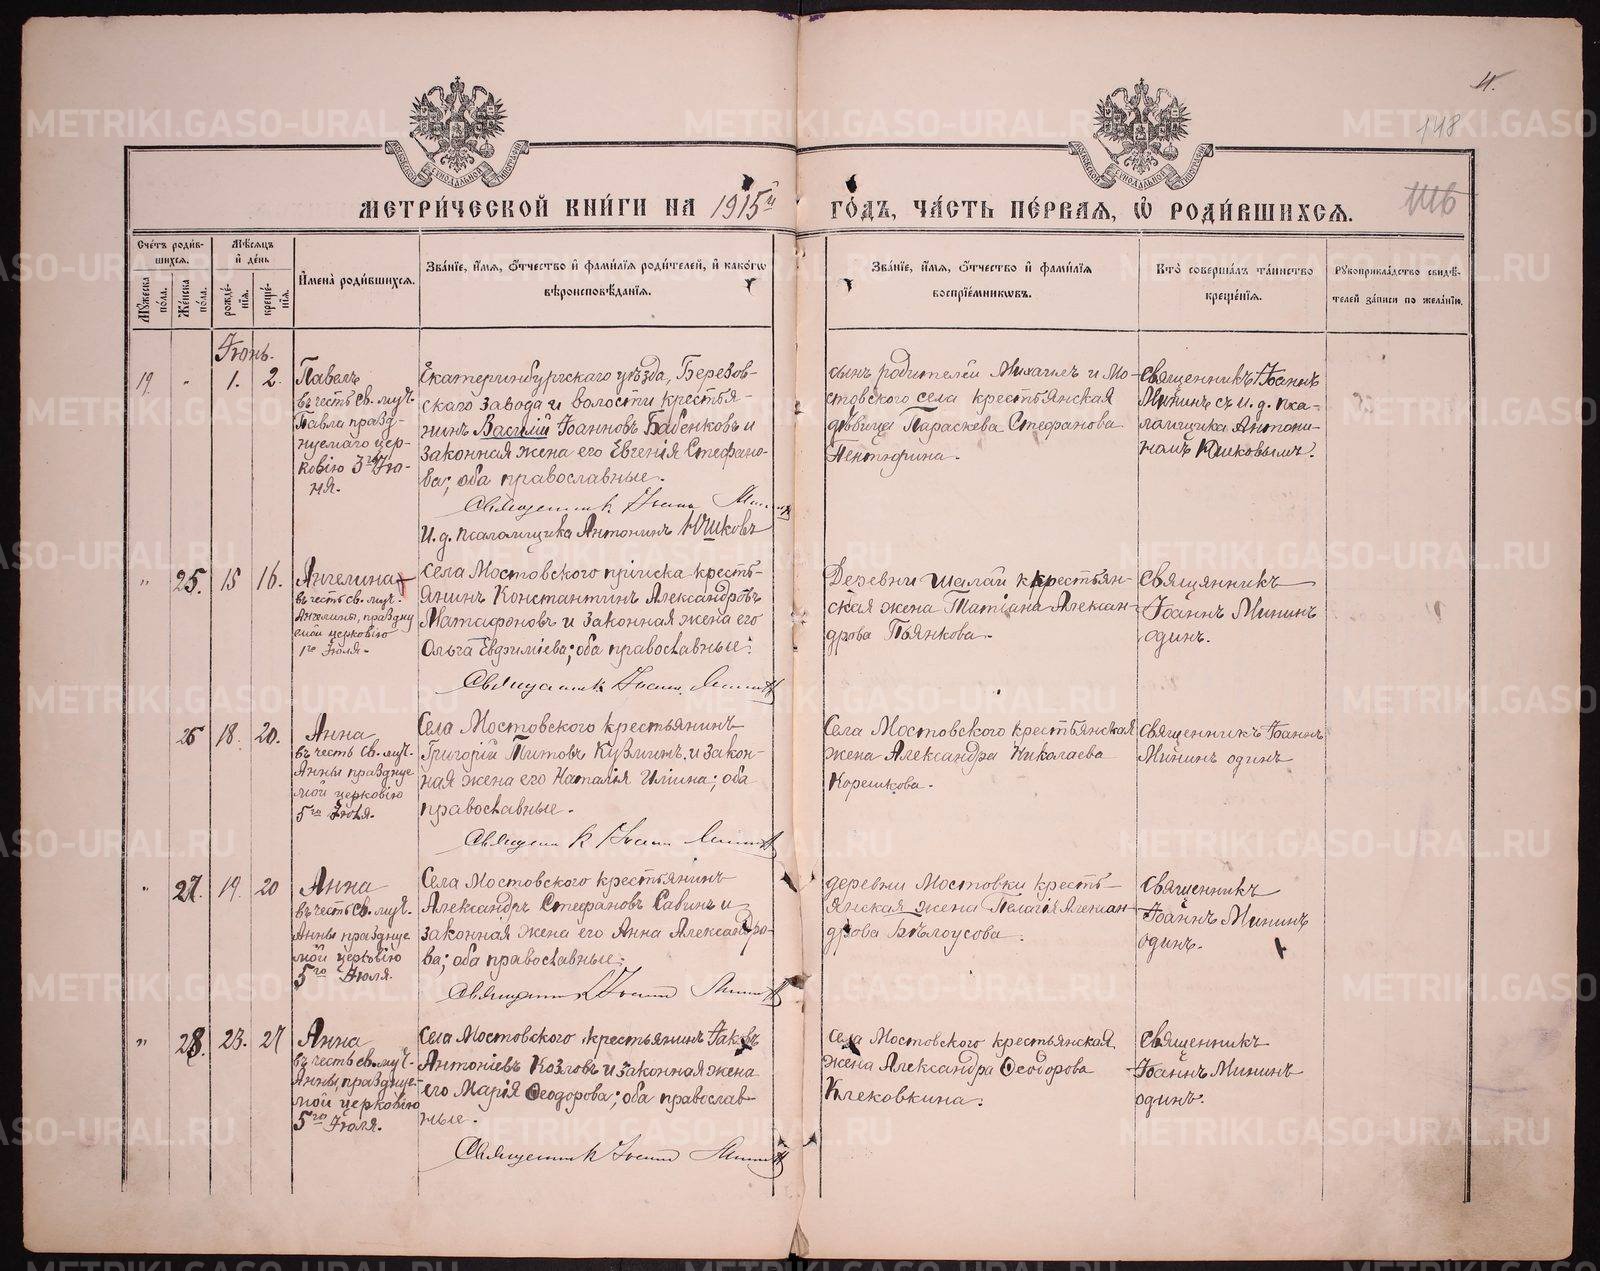 148
МЕТРИ́ЧЕСКОЙ КНИ́ГИ НА 1915й ГО́ДЪ, ЧА́СТЬ ПЕ́РВАЯ, Ѡ РОДИ́ВШИХСЯ.
Сче́тъ роди́в-
шихся.
Мѣ́сяцъ
и де́нь
Му́жеска
по́ла.
Же́нска
по́ла.
рожде́-
нія.
креще́-
нія.
Имена̀ роди́вшихся.
Зва́ніе, и́мя, о́тчество и фами́лія роди́телей, и како́гѡ
вѣроисповѣ́данія.
Зва́ніе, и́мя, о́тчество и фами́лія
воспріе́мниковъ.
Кто̀ соверша́лъ та́инство
креще́нія.
Рукоприкла́дство свидѣ́-
телей за́писи по жела́нію.
Іюнь.
19. " 1. 2.
Павелъ
въ честь св. муч.
Павла празд-
нуемаго цер-
ковію 3го Ію-
ня.
Екатеринбургскаго уѣзда, Березов-
скаго завода и волости крестья-
нинъ Василій Іоанновъ Бабенковъ и
законная жена его Евгенія Стефано-
ва; оба православные.
Священникъ Іоаннъ Мининъ
И. д. псаломщика Антонинъ Юшковъ
сынъ родителей Михаилъ и Мо-
стовского села крестьянская
дѣвица Параскева Стефанова
Пентюрина.
Священникъ Іоаннъ
Мининъ съ и. д. пса-
ломщика Антони-
номъ Юшковымъ.
" 25. 15 16.
Ангелина
въ честь св. муч.
Ангелины, праздну
емой церковію
1го Іюля.
Села Мостовского пріиска кресть-
янинъ Константинъ Александровъ
Матафоновъ и законная жена его
Ольга Евфиміева; оба православные.
Священникъ Іоаннъ Мининъ
Деревни Шалаи крестьян-
ская жена Татіана Алексан-
дрова Пьянкова.
Священникъ
Іоаннъ Мининъ
одинъ.
26 18. 20.
Анна
въ честь св. муч.
Анны празднуе
мой церковію
5го Іюля.
Села Мостовского крестьянинъ
Григорій Титовъ Кузминъ и закон-
ная жена его Наталія Иліина; оба
православные.
Священникъ Іоаннъ Мининъ
Села Мостовского крестьянская
жена Александра Николаева
Корешкова.
Священникъ Іоаннъ
Мининъ одинъ
" 27. 19. 20
Анна
въ честь св. муч.
Анны празднуе
мой церковію
5го Іюля.
Села Мостовского крестьянинъ
Александръ Стефановъ Савинъ и
законная жена его Анна Александро-
ва; оба православные.
Священникъ Іоаннъ Мининъ
деревни Мостовки кресть-
янская жена Пелагія Алексан-
дрова Бѣлоусова.
Священникъ
Іоаннъ Мининъ
одинъ.
" 28. 23. 27
Анна
въ честь св. муч.
Анны, празднуе-
мой церковію
5го Іюля.
Села Мостовского крестьянинъ Іаковъ
Антоніевъ Козловъ и законная жена
его Марія Ѳеодорова; оба православ-
ные.
Священникъ Іоаннъ Мининъ
села Мостовского крестьянская
жена Александра Ѳеодорова
Клековкина.
Священникъ
Іоаннъ Мининъ
одинъ.
METRIKI.GASO-URAL.RU